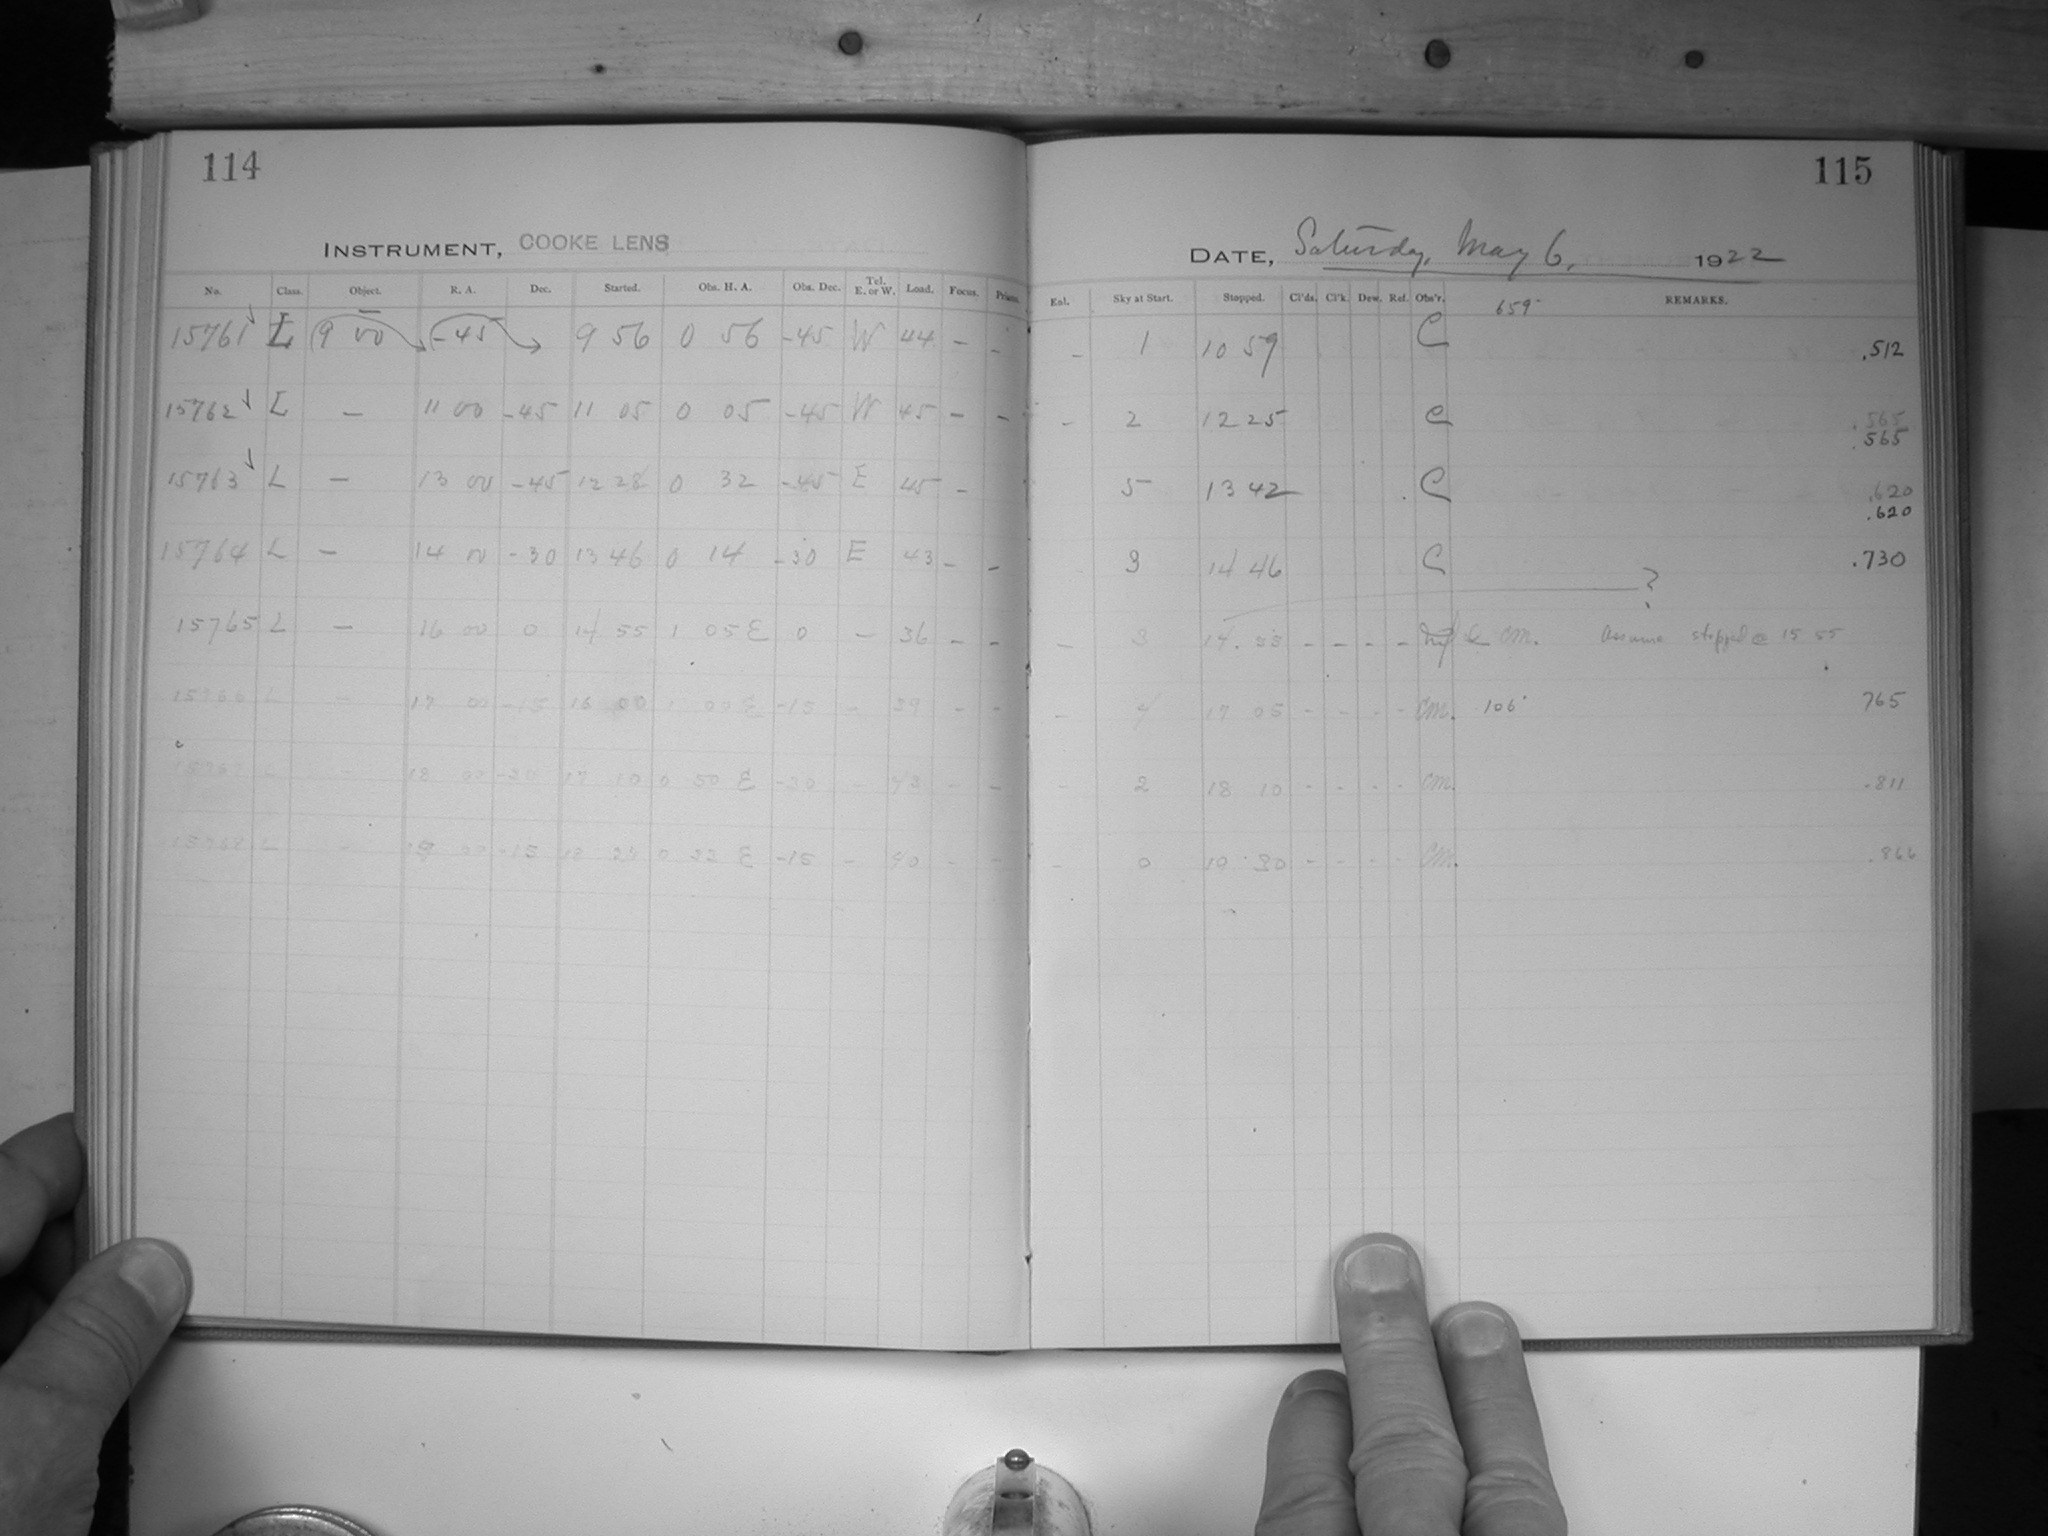 114
INSTRUMENT, COOKE LENS
No. Class. Object. R. A. Dec. Started. Obs. H. A. Obs. Dec. Tel. E. or W. Load. Focus. Prisms.
15761 L 9 00 -45 9 56 0 56 -45 W 44 - -
15762 L - 11 00 -45 11 05 0 05 -45 W 45 - -
15763 L - 13 00 -45 12 28 0 32 -45 E 45 -
15764 L - 14 00 -30 13 46 0 14 -30 E 43 - -
15765 L - 16 00 0 14 55 1 05 E 0 - 36 - -
15766 L - 17 00 -15 16 00 1 00 E -15 - 39 - -
15767 L - 18 00 17 10 0 50 E -30 - 43 - -
15768 L - 19 00 -15 18 0 E -15 - 40 - -
115
DATE, Saturday, May 6, 1922
Exl. Sky at Start. Stopped. Cl'ds. Cl'k. Dew. Ref. Obs'r. REMARKS.
659
- 1 10 59 C .512
- 2 12 25 C .565
.565
5 13 42 C .620
.620
3 14 46 C .730
?
- 3 14. - - - - C cm. Assume stopped @ 15 55
- 4 17 05 - - - - cm. 106 765
- 2 18 10 - - - - cm. .811
- 0 19 30 - - - - cm. .866